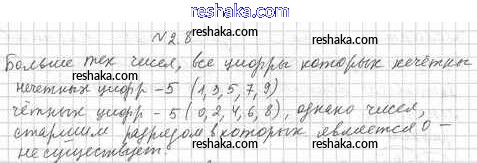 reshaka.ru
№2.8
Больше тех чисел, все цифры которых нечётны
нечетных цифр -5 (1,3,5,7,9)
чётных цифр - 5 (0,2,4,6,8), однако чисел,
старшим разрядом в которых является 0 -
не существует.
reshaka.ru